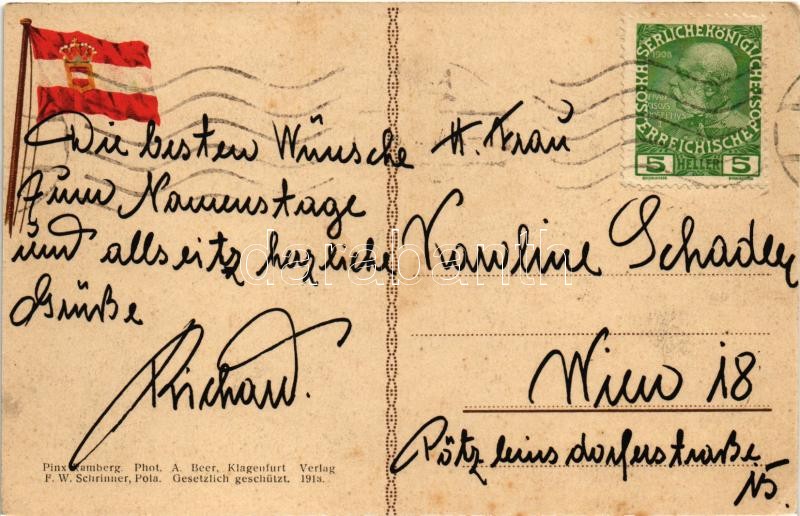 KAISERLICHE KÖNIGLICHE
ÖSTERREICHISCHE
1908
5 HELLER 5
Die besten Wünsche
zum Namenstage
und allseitz herzliche
Grüße
Richard.
H. Frau
Karoline Schadek
Wien 18
Pötzleinsdorferstraße
darabanth
Pinx Ramberg. Phot. A. Beer, Klagenfurt Verlag
F. W. Schrinner, Pola. Gesetzlich geschützt. 1913.